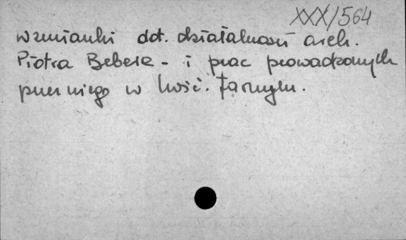 XXX/564
wzmianki dot. działalności arch.
Piotra Bebera - i prac prowadzonych
przez niego w kość. farnym.